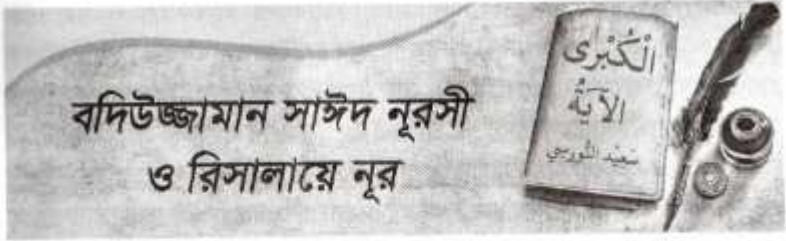 বদিউজ্জামান সাঈদ নূরসী
ও রিসালায়ে নূর
الْكُبْرٰى
الآيَةُ
سَعِيد النُّورسِي